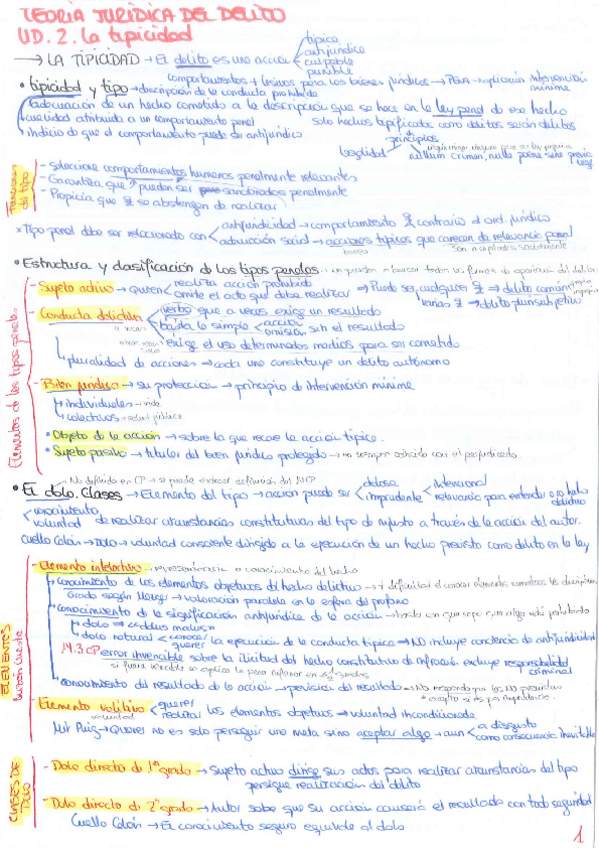 TEORIA JURÍDICA DEL DELITO
UD. 2. La tipicidad
→ LA TIPICIDAD → El delito es una acción
típica
antijurídica
culpable
punible
comportamientos + lesivos para los bienes jurídicos → PENA → aplicación intervención mínima
• tipicidad y tipo → descripción de la conducta prohibida
adecuación de un hecho cometido a la descripción que se hace en la ley penal de ese hecho
cualidad atribuida a un comportamiento penal
solo hechos tipificados como delitos serán delitos
indicio de que el comportamiento puede ser antijurídico
principios
legalidad
nullum crimen, nulla poena sine previa lege
Funciones del tipo
- Selecciona comportamientos humanos penalmente relevantes
- Garantiza que pueden ser sancionados penalmente
- Propicia que se abstengan de realizar
* Tipo penal debe ser relacionado con
antijuridicidad → comportamiento contrario al ord. jurídico
adecuación social → acciones típicas que carecen de relevancia penal
son aceptadas socialmente
• Estructura y clasificación de los tipos penales
Elementos de los tipos penales
- Sujeto activo → Quien
realiza acción prohibida
omite el acto que debe realizar
→ Puede ser cualquiera → delito común
varias → delito plurisubjetivo
- Conducta delictiva
verbo que a veces exige un resultado
basta la simple acción omisión sin el resultado
exige el uso determinados medios para ser cometido
pluralidad de acciones → cada una constituye un delito autónomo
- Bien jurídico → su protección → principio de intervención mínima
individuales → vida
colectivos → salud pública
• Objeto de la acción → sobre la que recae la acción típica.
• Sujeto pasivo → titular del bien jurídico protegido → no siempre coincide con el perjudicado
• El dolo. Clases → Elemento del tipo → acción puede ser
dolosa
imprudente
intencional
relevancia para entender o no hecho delictivo
conocimiento
voluntad
de realizar circunstancias constitutivas del tipo de injusto a través de la acción del autor.
Cuello Calón → Dolo → voluntad consciente dirigida a la ejecución de un hecho previsto como delito en la ley
ELEMENTOS
- Elemento intelectivo → representación o conocimiento del hecho
conocimiento de los elementos objetivos del hecho delictivo
Grado según Mezger → valoración paralela en la esfera del profano
conocimiento de la significación antijurídica de la acción → basta con que sepa que algo está prohibido
dolo → «dolus malus»
dolo natural
conocer
querer
la ejecución de la conducta típica → NO incluye conciencia de antijuridicidad
14.3 CP error invencible sobre la ilicitud del hecho constitutivo de infracción excluye responsabilidad criminal
si fuera vencible se aplica la pena inferior en 1 o 2 grados
conocimiento del resultado de la acción → previsión del resultado → No responde por los NO previstos
- Elemento volitivo
voluntad
querer
realizar
los elementos objetivos → voluntad incondicionada
Mir Puig → Querer no es solo perseguir una meta sino aceptar algo → aun
a disgusto
como consecuencia inevitable
CLASES DE DOLO
- Dolo directo de 1er grado → Sujeto activo dirige sus actos para realizar circunstancias del tipo
persigue realización del delito
- Dolo directo de 2º grado → Autor sabe que su acción causará el resultado con toda seguridad
Cuello Calón → El conocimiento seguro equivale al dolo
1